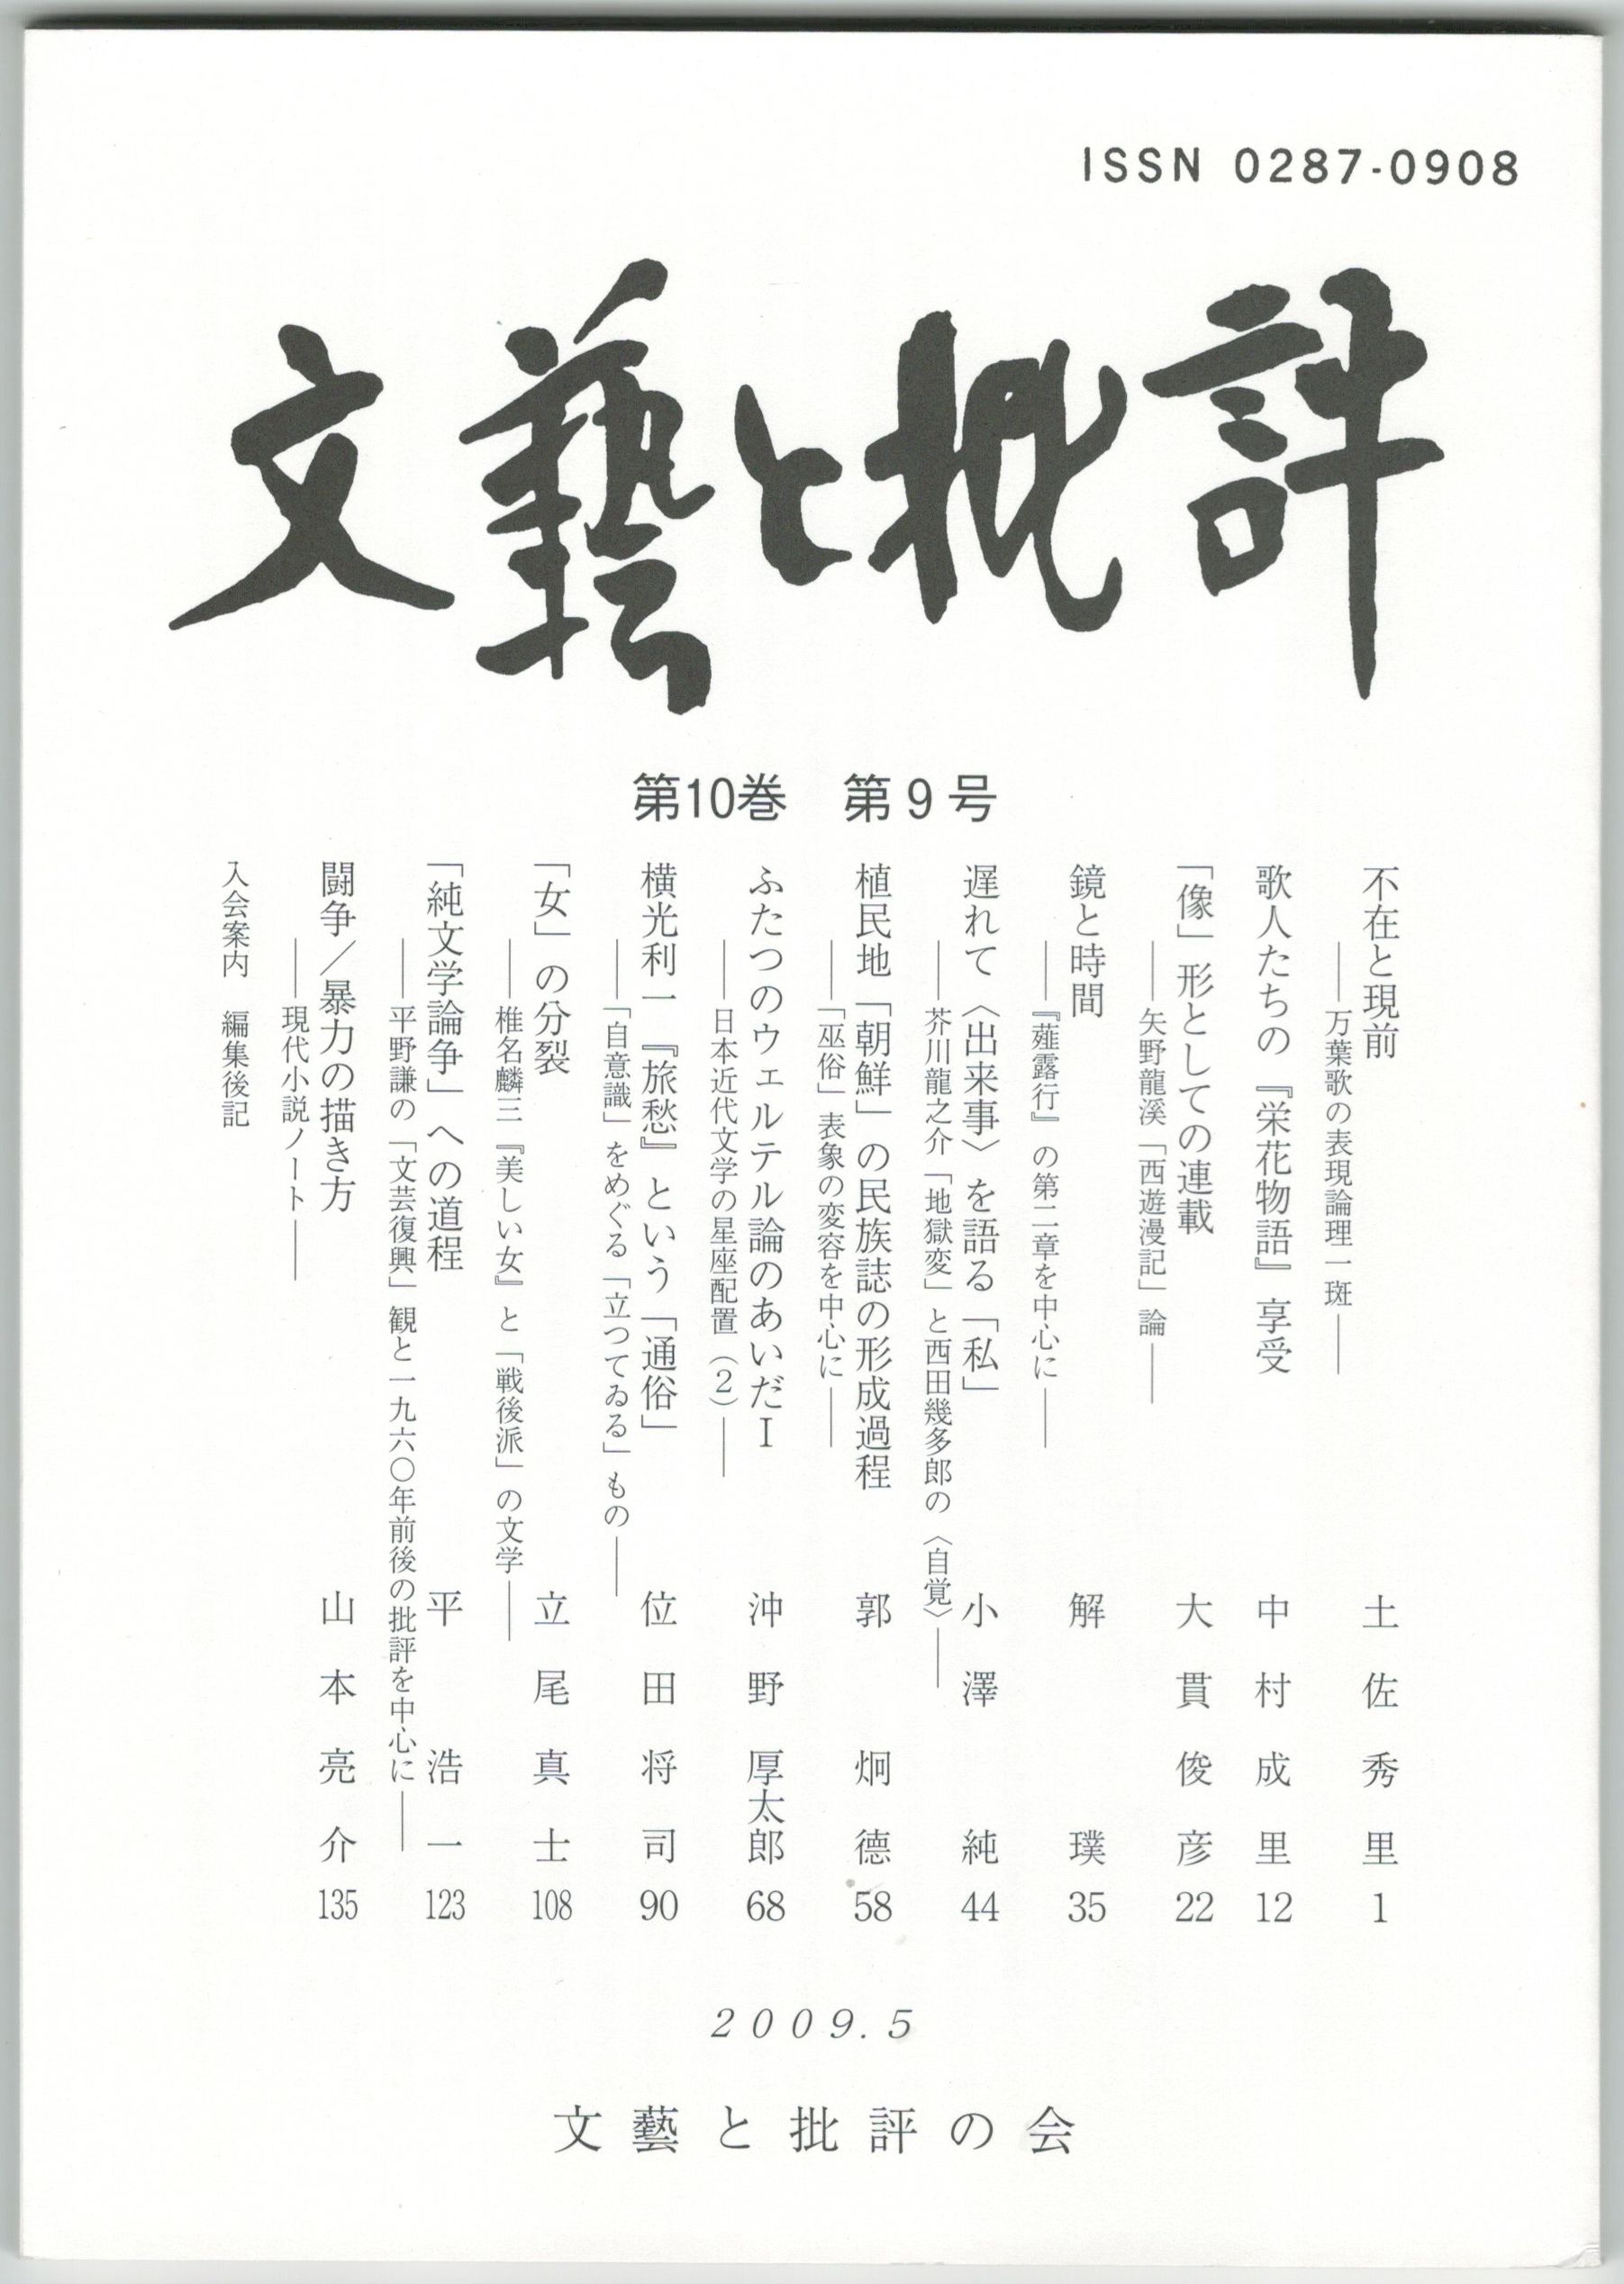 ISSN 0287-0908
文藝と批評
第10巻　第9号
不在と現前
――万葉歌の表現論理一斑――
土佐秀里 1
歌人たちの『栄花物語』享受
中村成里 12
「像」形としての連載
――矢野龍溪「西遊漫記」論――
大貫俊彦 22
鏡と時間
――『薤露行』の第二章を中心に――
解璞 35
遅れて〈出来事〉を語る「私」
――芥川龍之介「地獄変」と西田幾多郎の〈自覚〉――
小澤純 44
植民地「朝鮮」の民族誌の形成過程
――「巫俗」表象の変容を中心に――
郭炯德 58
ふたつのウェルテル論のあいだⅠ
――日本近代文学の星座配置（2）――
沖野厚太郎 68
横光利一『旅愁』という「通俗」
――「自意識」をめぐる「立つてゐる」もの――
位田将司 90
「女」の分裂
――椎名麟三『美しい女』と「戦後派」の文学――
立尾真士 108
「純文学論争」への道程
――平野謙の「文芸復興」観と一九六〇年前後の批評を中心に――
平浩一 123
闘争／暴力の描き方
――現代小説ノート――
山本亮介 135
入会案内　編集後記
2009.5
文藝と批評の会